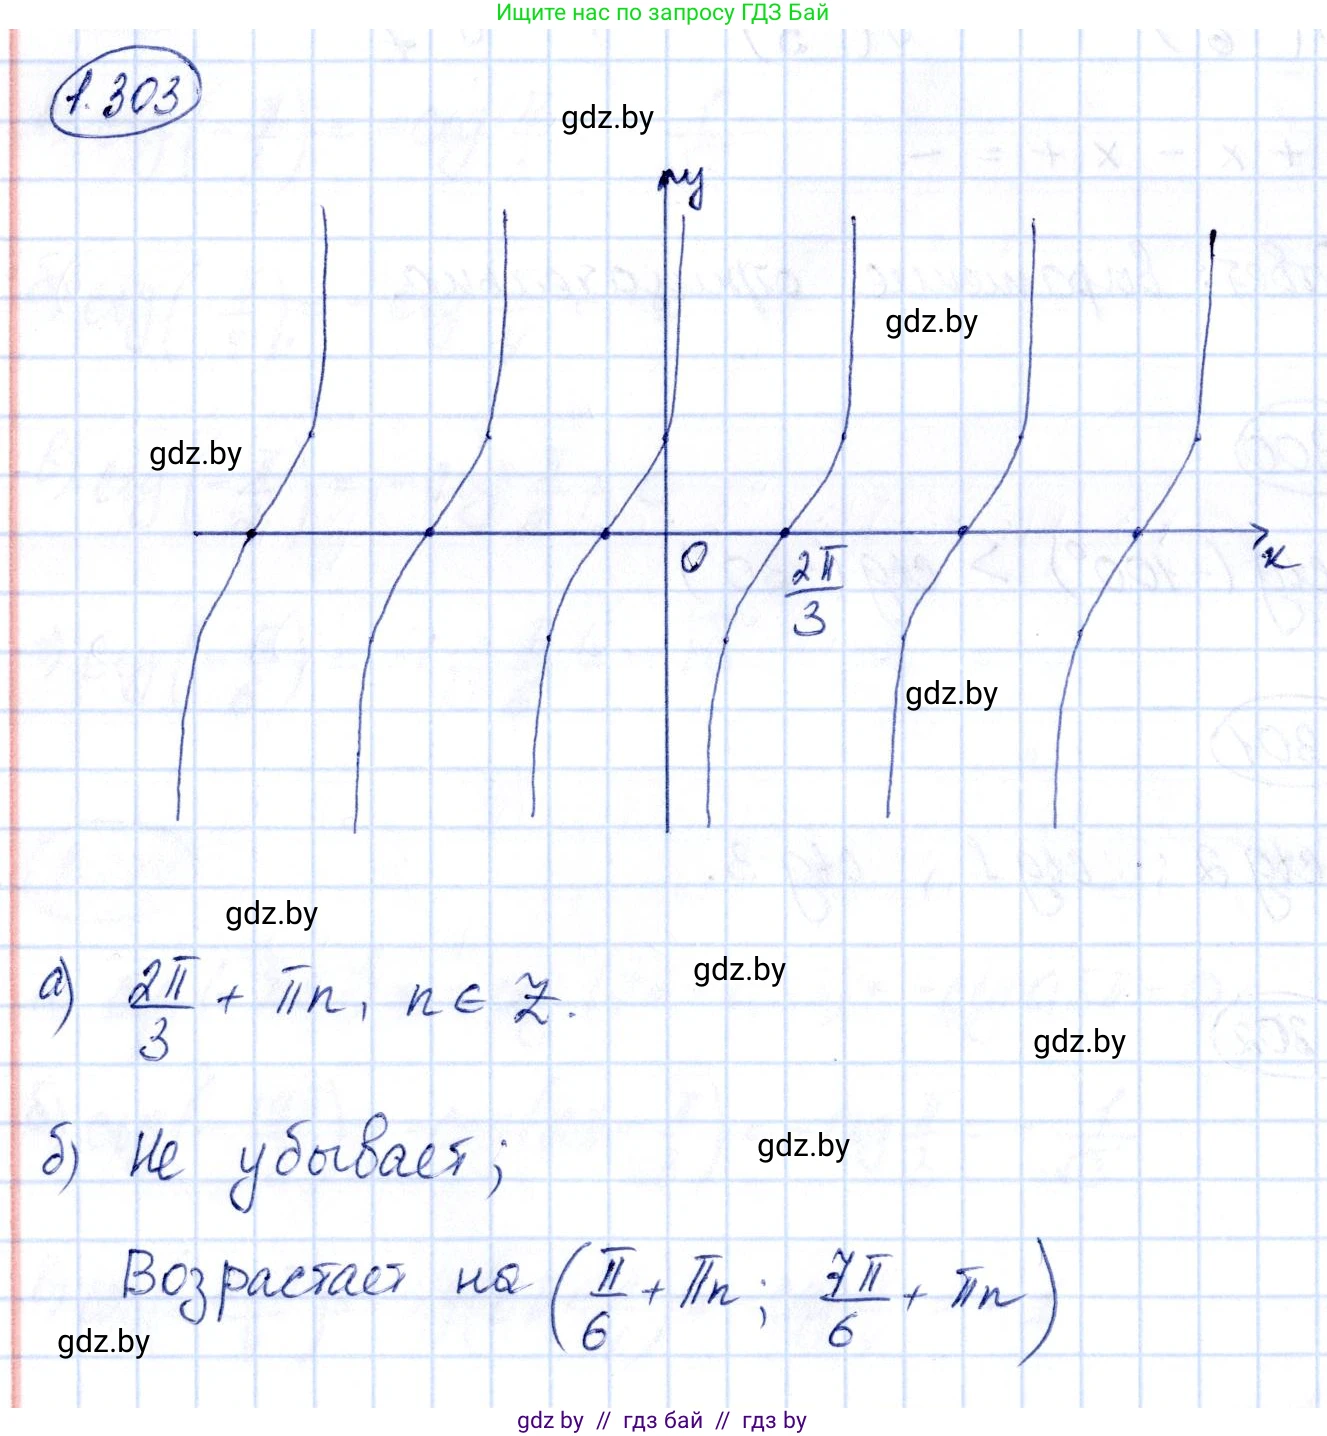 Ищите нас по запросу ГДЗ Бай
1.303
gdz.by
y
gdz.by
gdz.by
0
2π/3
x
gdz.by
gdz.by
gdz.by
а) 2π/3 + πn, n ∈ Z.
gdz.by
б) Не убывает;
gdz.by
Возрастает на (π/6 + πn; 7π/6 + πn)
gdz.by
gdz.by // гдз бай // gdz by